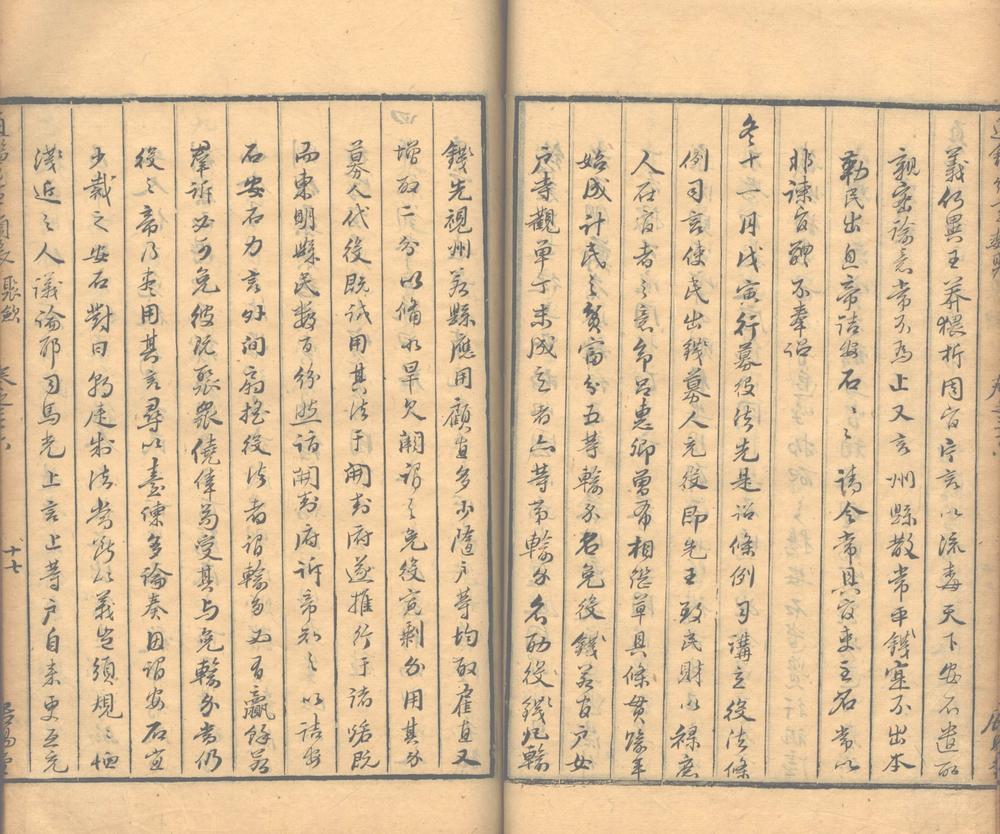 義仍異王莽猥析周官
言以流毒天下安石遣
親密諭意常不為止又言州縣散常平錢實不出本
勒民出息帝詰安石安石請令常具官吏主名常以
非諫官體不奉詔
冬十二月戊寅行募役法先是詔條例司講立役法條
例司言使民出錢募人充役即先王致民財以祿庶
人在官者之意命呂惠卿曾布相繼草具條貫踰年
始成計民之貧富分五等輸錢名免役錢若官戶女
戶寺觀單丁未成丁者亦等第輸錢名助役錢凡輸
錢先視州若縣應用顧直多少隨戶等均取雇直又
增取二分以備水旱欠闕謂之免役寬剩錢用其錢
募人代役既試用其法于開封府遂推行于諸路既
而東明縣民數百紛然詣開封府訴帝知之以詰安
石安石力言外間扇搖役法者謂輸多必有贏餘若
羣訴必可免彼既聚眾僥倖苟受其與免輸錢當仍
役之帝乃盡用其言尋以臺諫多論奏因謂安石宜
少裁之安石對曰朝廷制法當斷以義豈須規規恤
淺近之人議論耶司馬光上言上等戶自來更互充
聚斂
十七